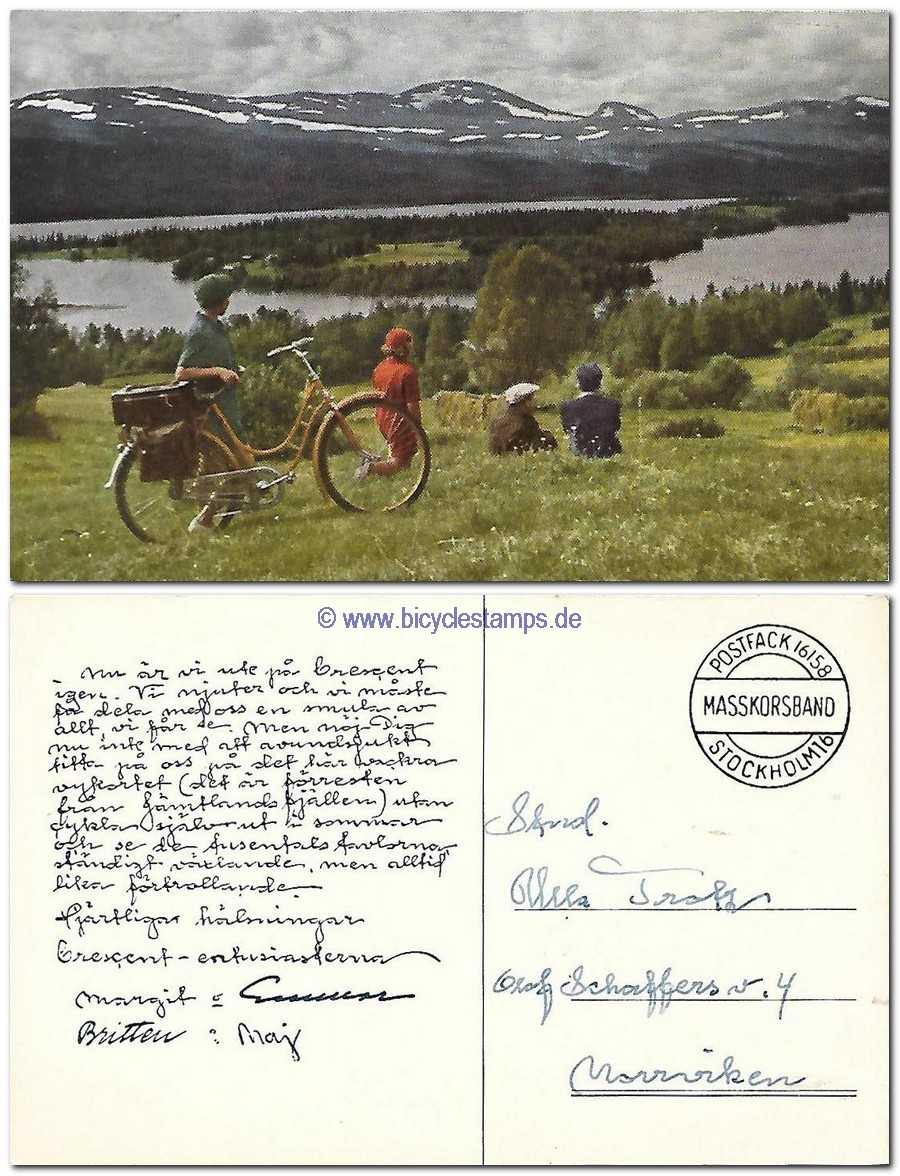 © www.bicyclestamps.de
Nu är vi ute på Crescent
igen. Vi njuter och vi måste
få dela med oss en smula av
allt, vi får se. Men nöj Dig
nu inte med att avundsjukt
titta på oss på det här vackra
vykortet (det är förresten
från Jämtlandsfjällen) utan
cykla själv ut i sommar
och se de tusentals tavlorna
ständigt växlande, men alltid
lika förtrollande.
Hjärtliga hälsningar
Crescent-entusiasterna
Margit o Gunnar
Britten o Maj
POSTFACK 16158
MASSKORSBAND
STOCKHOLM 16
Stud.
Ulla
Olof Schaffers v. 4
Norrviken